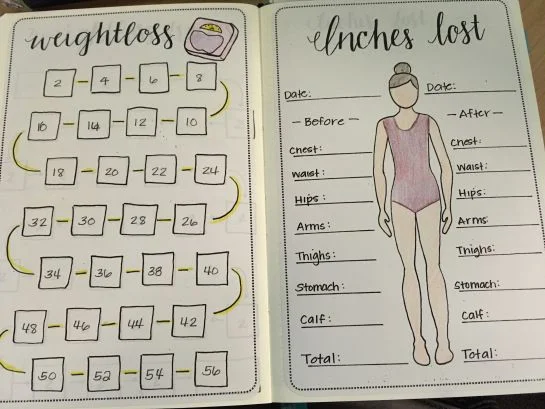 weightloss
2 4 6 8
16 14 12 10
18 20 22 24
32 30 28 26
34 36 38 40
48 46 44 42
50 52 54 56
Inches lost
Date:
- Before -
Chest:
Waist:
Hips:
Arms:
Thighs:
Stomach:
Calf:
Total:
Date:
- After -
Chest:
Waist:
Hips:
Arms
Thighs:
Stomach:
Calf:
Total: